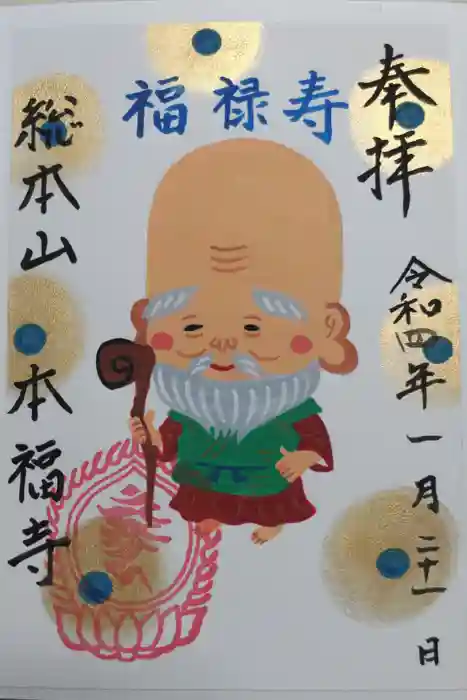 福禄寿
奉拝
令和四年一月二十一日
総本山 本福寺